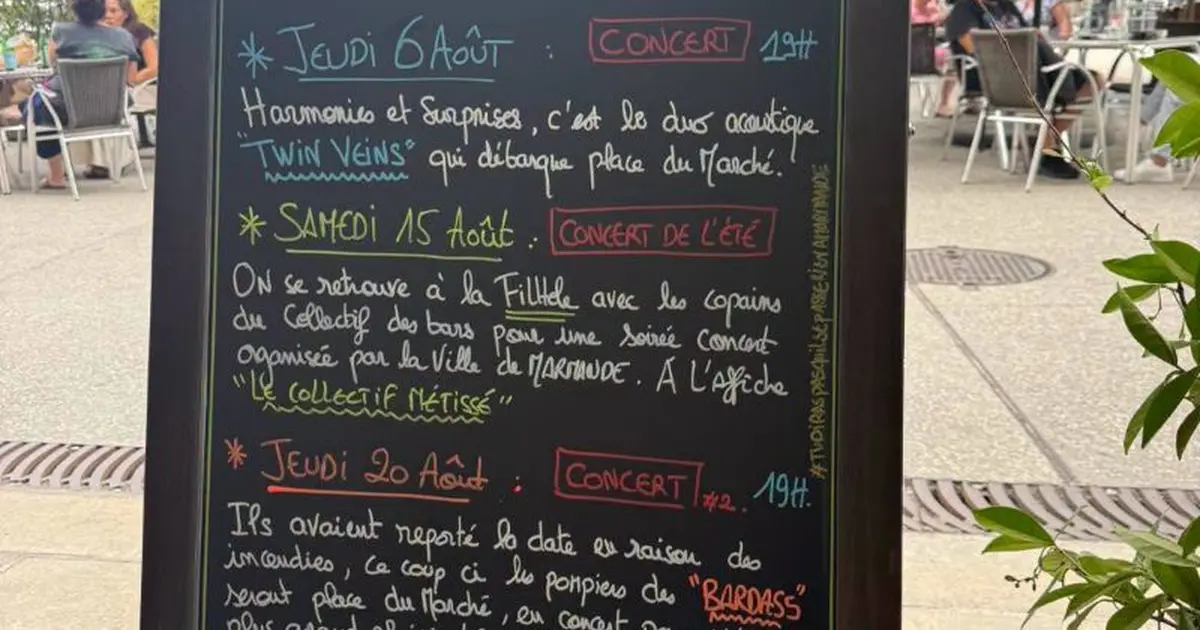 * JEUDI 6 AOÛT : CONCERT 19H
Harmonies et Surprises, c'est le duo acoustique
"TWIN VEINS" qui débarque place du Marché.
* SAMEDI 15 Août : CONCERT DE L'ÉTÉ
ON se retrouve à la Filhole avec les copains
du Collectif des bars pour une soirée concert
oganisée par la Ville de MARMANDE. À L'Affiche
"LE COLLECTIF MÉTISSÉ"
* JEUDI 20 Août : CONCERT #2. 19H.
Ils avaient reporté la date en raison des
incendies, ce coup ci les pompiers des "BARDASS"
seront place du Marché, en concert
plus
#TUDIRASPASQUILSEPASSERIENAMARMANDE